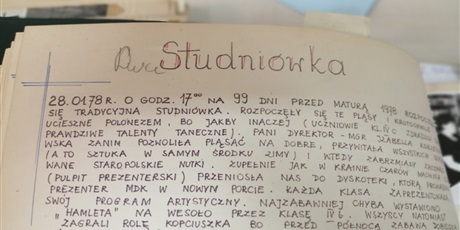 Dwie Studniówka
28.01.78 R. O GODZ. 17⁰⁰ NA 99 DNI PRZED MATURĄ 1978 ROZPOCZĘŁA
SIĘ TRADYCYJNA STUDNIÓWKA. ROZPOCZĘŁY SIĘ TE PLĄSY I
UCIESZNE POLONEZEM, BO JAKBY INACZEJ (UCZNIOWIE KL. IV C
PRAWDZIWE TALENTY TANECZNE). PANI DYREKTOR - MGR IZABELLA
WSKA ZANIM POZWOLIŁA PLĄSAĆ NA DOBRE, PRZYWITAŁA WSZYSTKIE
(A TO SZTUKA W SAMYM ŚRODKU ZIMY!) I KTEDY ZABRZMIAŁY
WANE STAROPOLSKIE NUTKI, ZUPEŁNIE JAK W KRAINIE CZARÓW
(PULPIT PREZENTERSKI) PRZENIOSŁA NAS DO DYSKOTEKI, KTÓRĄ
PREZENTER MDK W NOWYM PORCIE. KAŻDA KLASA ZAPREZENTOWAŁA
SWÓJ PROGRAM ARTYSTYCZNY. NAJZABAWNIEJ CHYBA WYSTAWIONO
„HAMLETA" NA WESOŁO PRZEZ KLASĘ IV b. WSZYSCY NATOMIAST
ZAGRALI ROLĘ KOPCIUSZKA BO PRZED PÓŁNOCĄ ZABAWA DOBIEGŁA